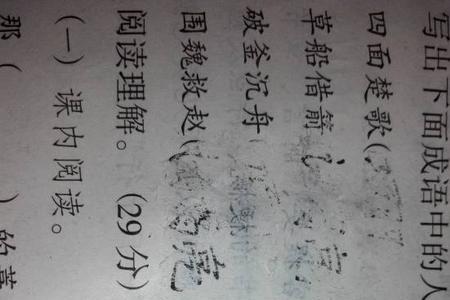 写出下面成语中的人
四面楚歌(
草船借箭(
破釜沉舟(
围魏救赵( 亮
阅读理解。(29分)
(一)课内阅读。
那( )的